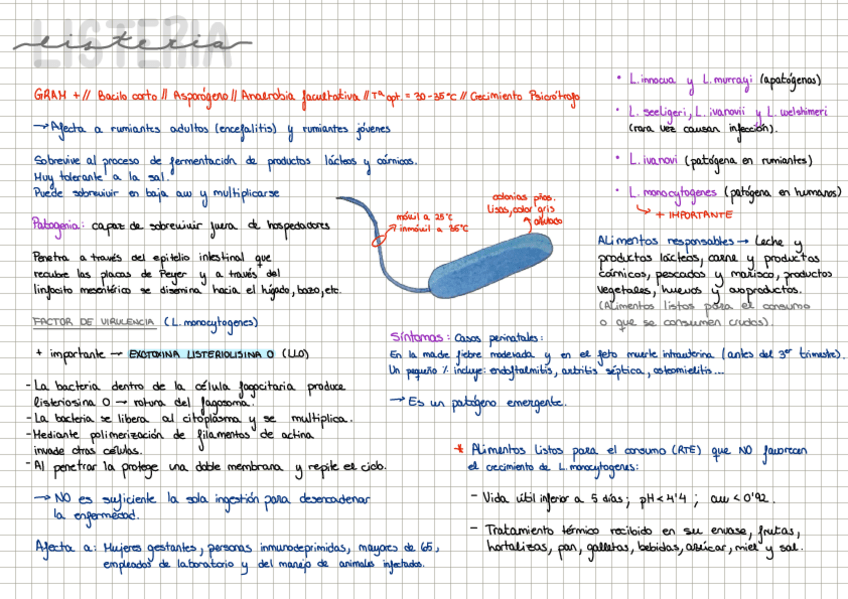 LISTERIA
listeria
GRAM + // Bacilo corto // Asporógeno // Anaerobia facultativa // Tª opt. = 30-35°C // Crecimiento Psicrótrofo
→ Afecta a rumiantes adultos (encefalitis) y rumiantes jóvenes
Sobrevive al proceso de fermentación de productos lácteos y cárnicos.
Muy tolerante a la sal.
Puede sobrevivir en baja aw y multiplicarse
Patogenia: capaz de sobrevivir fuera de hospedadores
Penetra a través del epitelio intestinal que
recubre las placas de Peyer y a través del
linfocito mesentérico se disemina hacia el hígado, bazo, etc.
móvil a 25°C
inmóvil a 35°C
colonias pñas.
lisas, color gris
azulado
• L. innocua y L. murrayi (apatógenas)
• L. seeligeri, L. ivanovii y L. welshimeri
(rara vez causan infección).
• L. ivanovi (patógena en rumiantes)
• L. monocytogenes (patógena en humanos)
→ + IMPORTANTE
Alimentos responsables → Leche y
productos lácteos, carne y productos
cárnicos, pescados y marisco, productos
vegetales, huevos y ovoproductos.
(Alimentos listos para el consumo
o que se consumen crudos).
FACTOR DE VIRULENCIA (L. monocytogenes)
+ importante → EXOTOXINA LISTERIOLISINA O (LLO)
- La bacteria dentro de la célula fagocitaria produce
listeriosina O → rotura del fagosoma.
- La bacteria se libera al citoplasma y se multiplica.
- Mediante polimerización de filamentos de actina
invade otras células.
- Al penetrar la protege una doble membrana y repite el ciclo.
→ NO es suficiente la sola ingestión para desencadenar
la enfermedad.
Afecta a: Mujeres gestantes, personas inmunodeprimidas, mayores de 65,
empleados de laboratorio y del manejo de animales infectados.
Síntomas: Casos perinatales:
En la madre fiebre moderada y en el feto muerte intrauterina (antes del 3er trimestre).
Un pequeño % incluye: endoftalmitis, artritis séptica, osteomielitis...
→ Es un patógeno emergente.
* Alimentos listos para el consumo (RTE) que NO favorecen
el crecimiento de L. monocytogenes:
- Vida útil inferior a 5 días; pH < 4'4; aw < 0'92.
- Tratamiento térmico recibido en su envase, frutas,
hortalizas, pan, galletas, bebidas, azúcar, miel y sal.